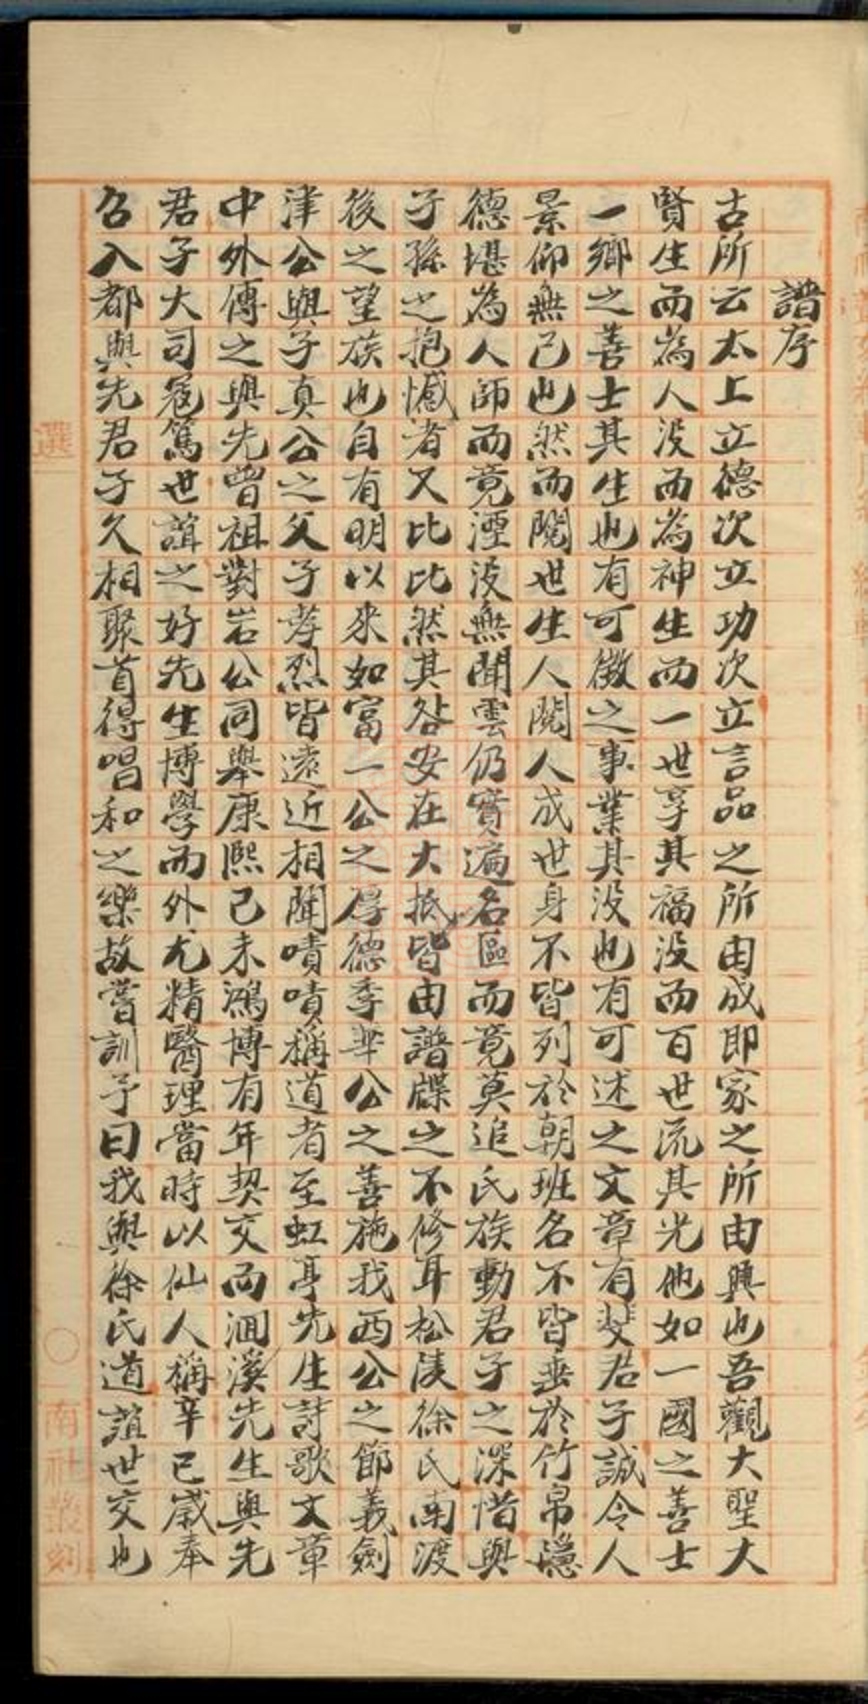 譜序
古所云太上立德次立功次立言品之所由成即家之所由興也吾觀大聖大
賢生而為人没而為神生而一世享其福没而百世流其光他如一國之善士
一鄉之善士其生也有可徵之事業其没也有可述之文章有斐君子誠令人
景仰無已也然而閱世生人閱人成世身不皆列於朝班名不皆垂於竹帛隱
德堪為人師而竟湮没無聞雲仍實遍名區而竟莫追氏族動君子之深惜與
子孫之抱憾者又比比然其咎安在大抵皆由譜牒之不修耳松陵徐氏南渡
後之望族也自有明以來如富一公之厚德季華公之善施我西公之節義劍
津公與子真公之父子孝烈皆遠近相聞嘖嘖稱道者至虹亭先生詩歌文章
中外傳之與先曾祖對岩公同舉康熙己未鴻博有年契交而洄溪先生與先
君子大司寇篤世誼之好先生博學而外尤精醫理當時以仙人稱辛巳歲奉
召入都與先君子久相聚首得唱和之樂故嘗訓予曰我與徐氏道誼世交也
選
○
南社叢刻